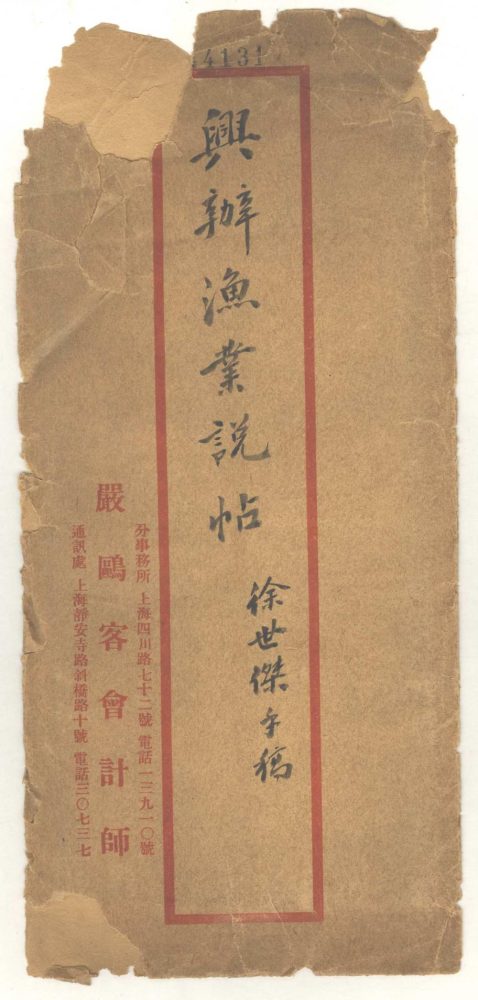 4131
興辦漁業説帖
徐世傑手稿
分事務所 上海四川路七十二號 電話一三九一〇號
嚴鷗客會計師
通訊處 上海靜安寺路斜橋路十號 電話三〇七三七